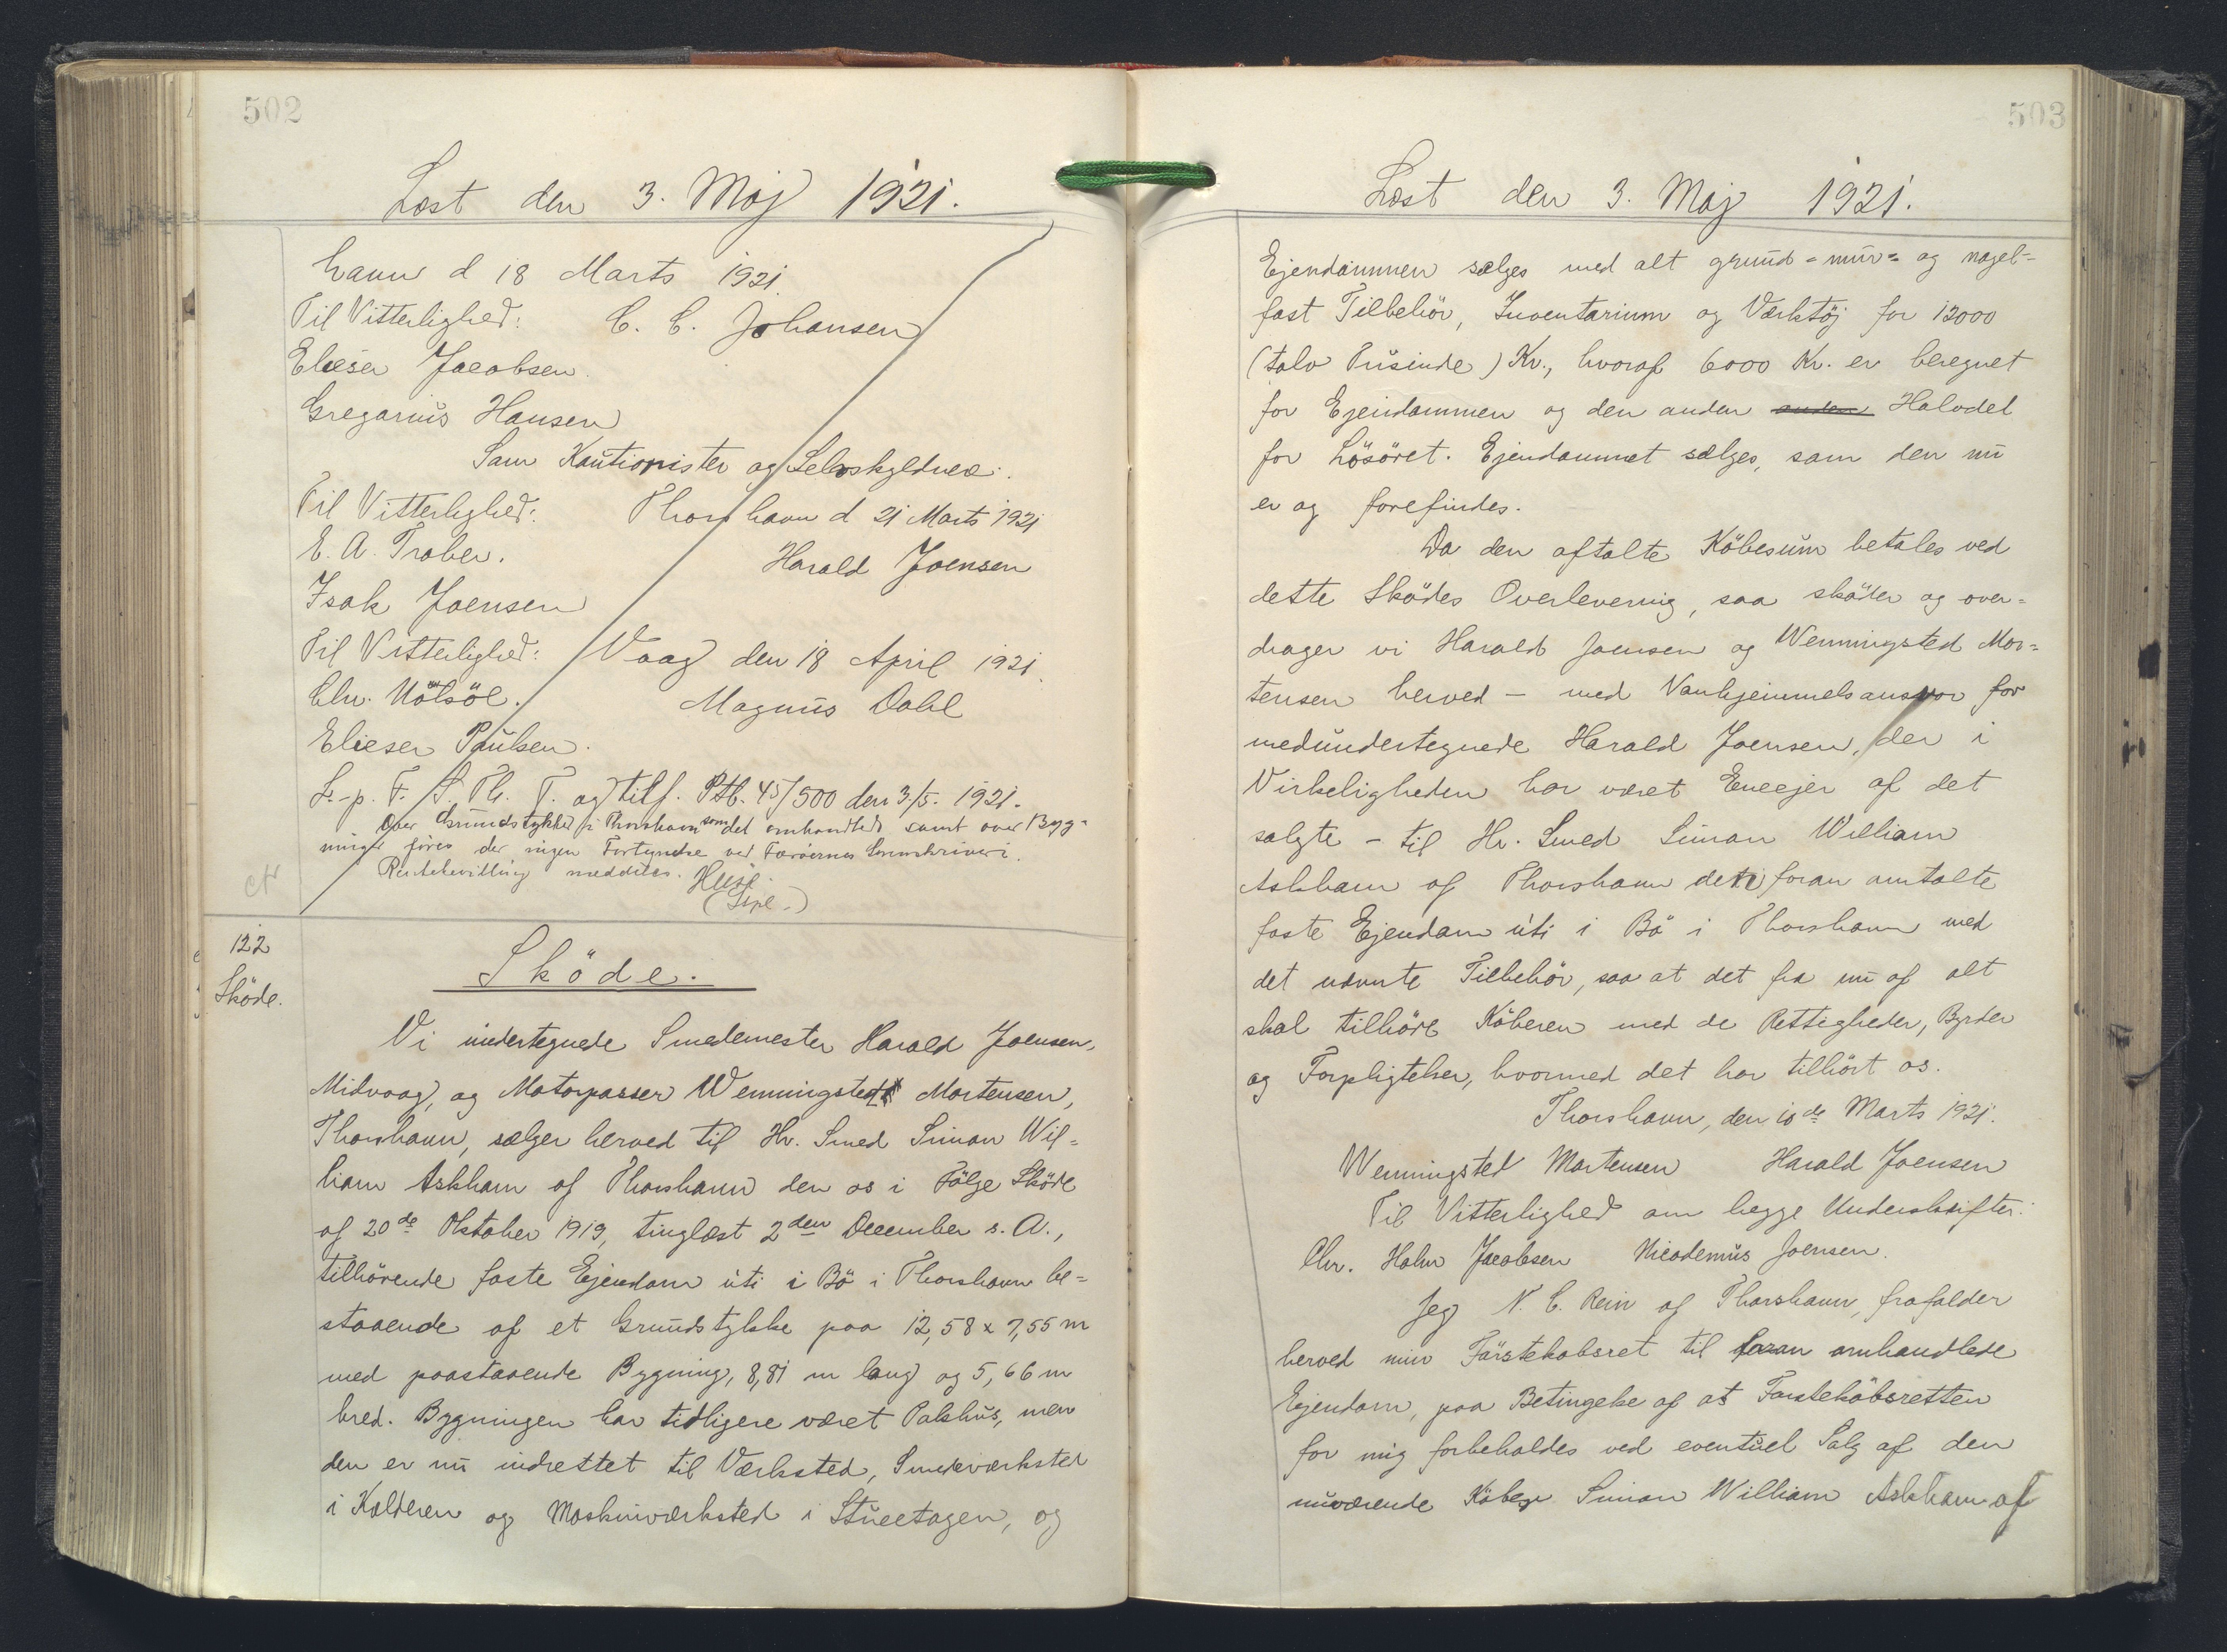 502
Læst den 3. Maj 1921.
havn d 18 Marts 1921.
Til Vitterlighed: C. C. Johansen
Elieser Jacobsen
Gregarius Hansen
Som Kautionister og Selvskyldnere:
Til Vitterlighed: Thorshavn d 21 Marts 1921
E. A. Trober. Harald Joensen
Isak Joensen
Til Vitterlighed: Vaag den 18 April 1921.
Chr. Nolsöe. Magnus Dahl
Elieser Poulsen.
L.-p. F. S. Th. T. og tilf. Ptb. 45/500 den 3/5. 1921.
Over Grundstykket i Thorshavn som det omhandled samt over Byg-
ninge föres der ingen Fortegnelse ved Færöernes Sorenskriveri.
Rentebevilling meddeles.
122
Sköde.
Sköde.
Vi undertegnede Smedemester Harald Joensen,
Midvaag, og Motorpasser Wenningsted Mortensen,
Thorshavn, sælger herved til Hr. Smed Simon Wil=
liam Askham af Thorshavn den os i Fölge Sköde
af 20de Oktober 1919, tinglæst 2den December s. A.,
tilhörende faste Ejendom uti i Bö i Thorshavn be=
staaende af et Grundstykke paa 12,58 x 7,55 m
med paastaaende Bygning, 8,81 m lang og 5,66 m
bred. Bygningen har tidligere været Pakhus, men
den er nu indrettet til Værksted, Smedeværksted
i Kælderen og Maskinværksted i Stueetagen, og
503
Læst den 3. Maj 1921.
Ejendommen sælges med alt grund= mur= og nagel=
fast Tilbehör, Inventarium og Værktöj for 12000
(tolv Tusinde) Kr., hvoraf 6000 Kr. er beregnet
for Ejendommen og den anden anden Halvdel
for Lösöret. Ejendommet sælges, som den nu
er og forefindes.
Da den aftalte Köbesum betales ved
dette Sködes Overlevering, saa sköder og over=
drager vi Harald Joensen og Wenningsted Mor=
tensen herved - med Vanhjemmelsansvar for
medundertegnede Harald Joensen, der i
Virkeligheden har været Eneejer af det
solgte - til Hr. Smed Simon William
Askham af Thorshavn den foran omtalte
faste Ejendom uti i Bö i Thorshavn med
det nævnte Tilbehör, saa at det fra nu af alt
skal tilhöre Köberen med de Rettigheder, Byrder
og Forpligtelser, hvormed det har tilhört os.
Thorshavn, den 10de Marts 1921.
Wenningsted Mortensen Harald Joensen
Til Vitterlighed om begge Underskrifter:
Chr. Holm Jacobsen Nicodemus Joensen.
Jeg N. C. Rein af Thorshavn, frafalder
herved min Förstekobsret til foran omhandlede
Ejendom, paa Betingelse af at Forsteköbsretten
for mig forbeholdes ved eventuel Salg af den
nuværende Köber Simon William Askham af